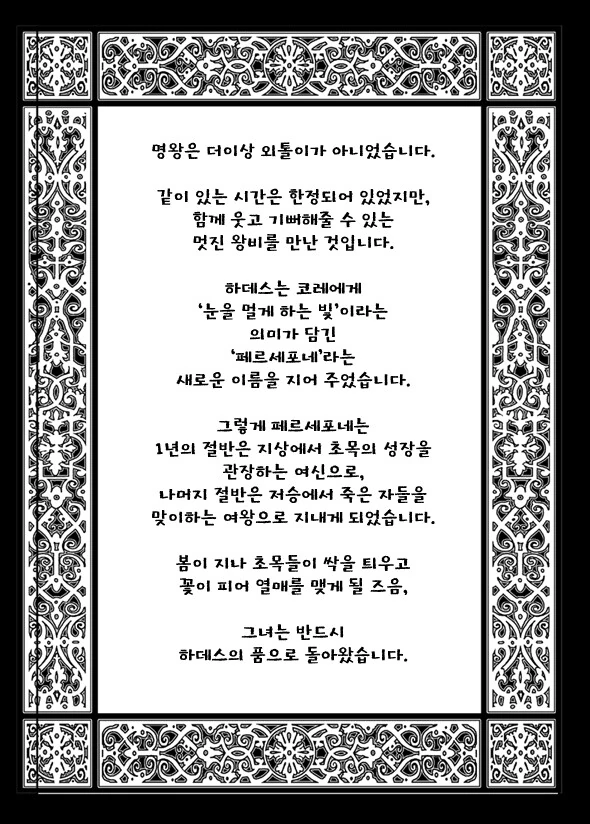 명왕은 더이상 외톨이가 아니었습니다.
같이 있는 시간은 한정되어 있었지만,
함께 웃고 기뻐해줄 수 있는
멋진 왕비를 만난 것입니다.
하데스는 코레에게
‘눈을 멀게 하는 빛’이라는
의미가 담긴
‘페르세포네’라는
새로운 이름을 지어 주었습니다.
그렇게 페르세포네는
1년의 절반은 지상에서 초목의 성장을
관장하는 여신으로,
나머지 절반은 저승에서 죽은 자들을
맞이하는 여왕으로 지내게 되었습니다.
봄이 지나 초목들이 싹을 틔우고
꽃이 피어 열매를 맺게 될 즈음,
그녀는 반드시
하데스의 품으로 돌아왔습니다.